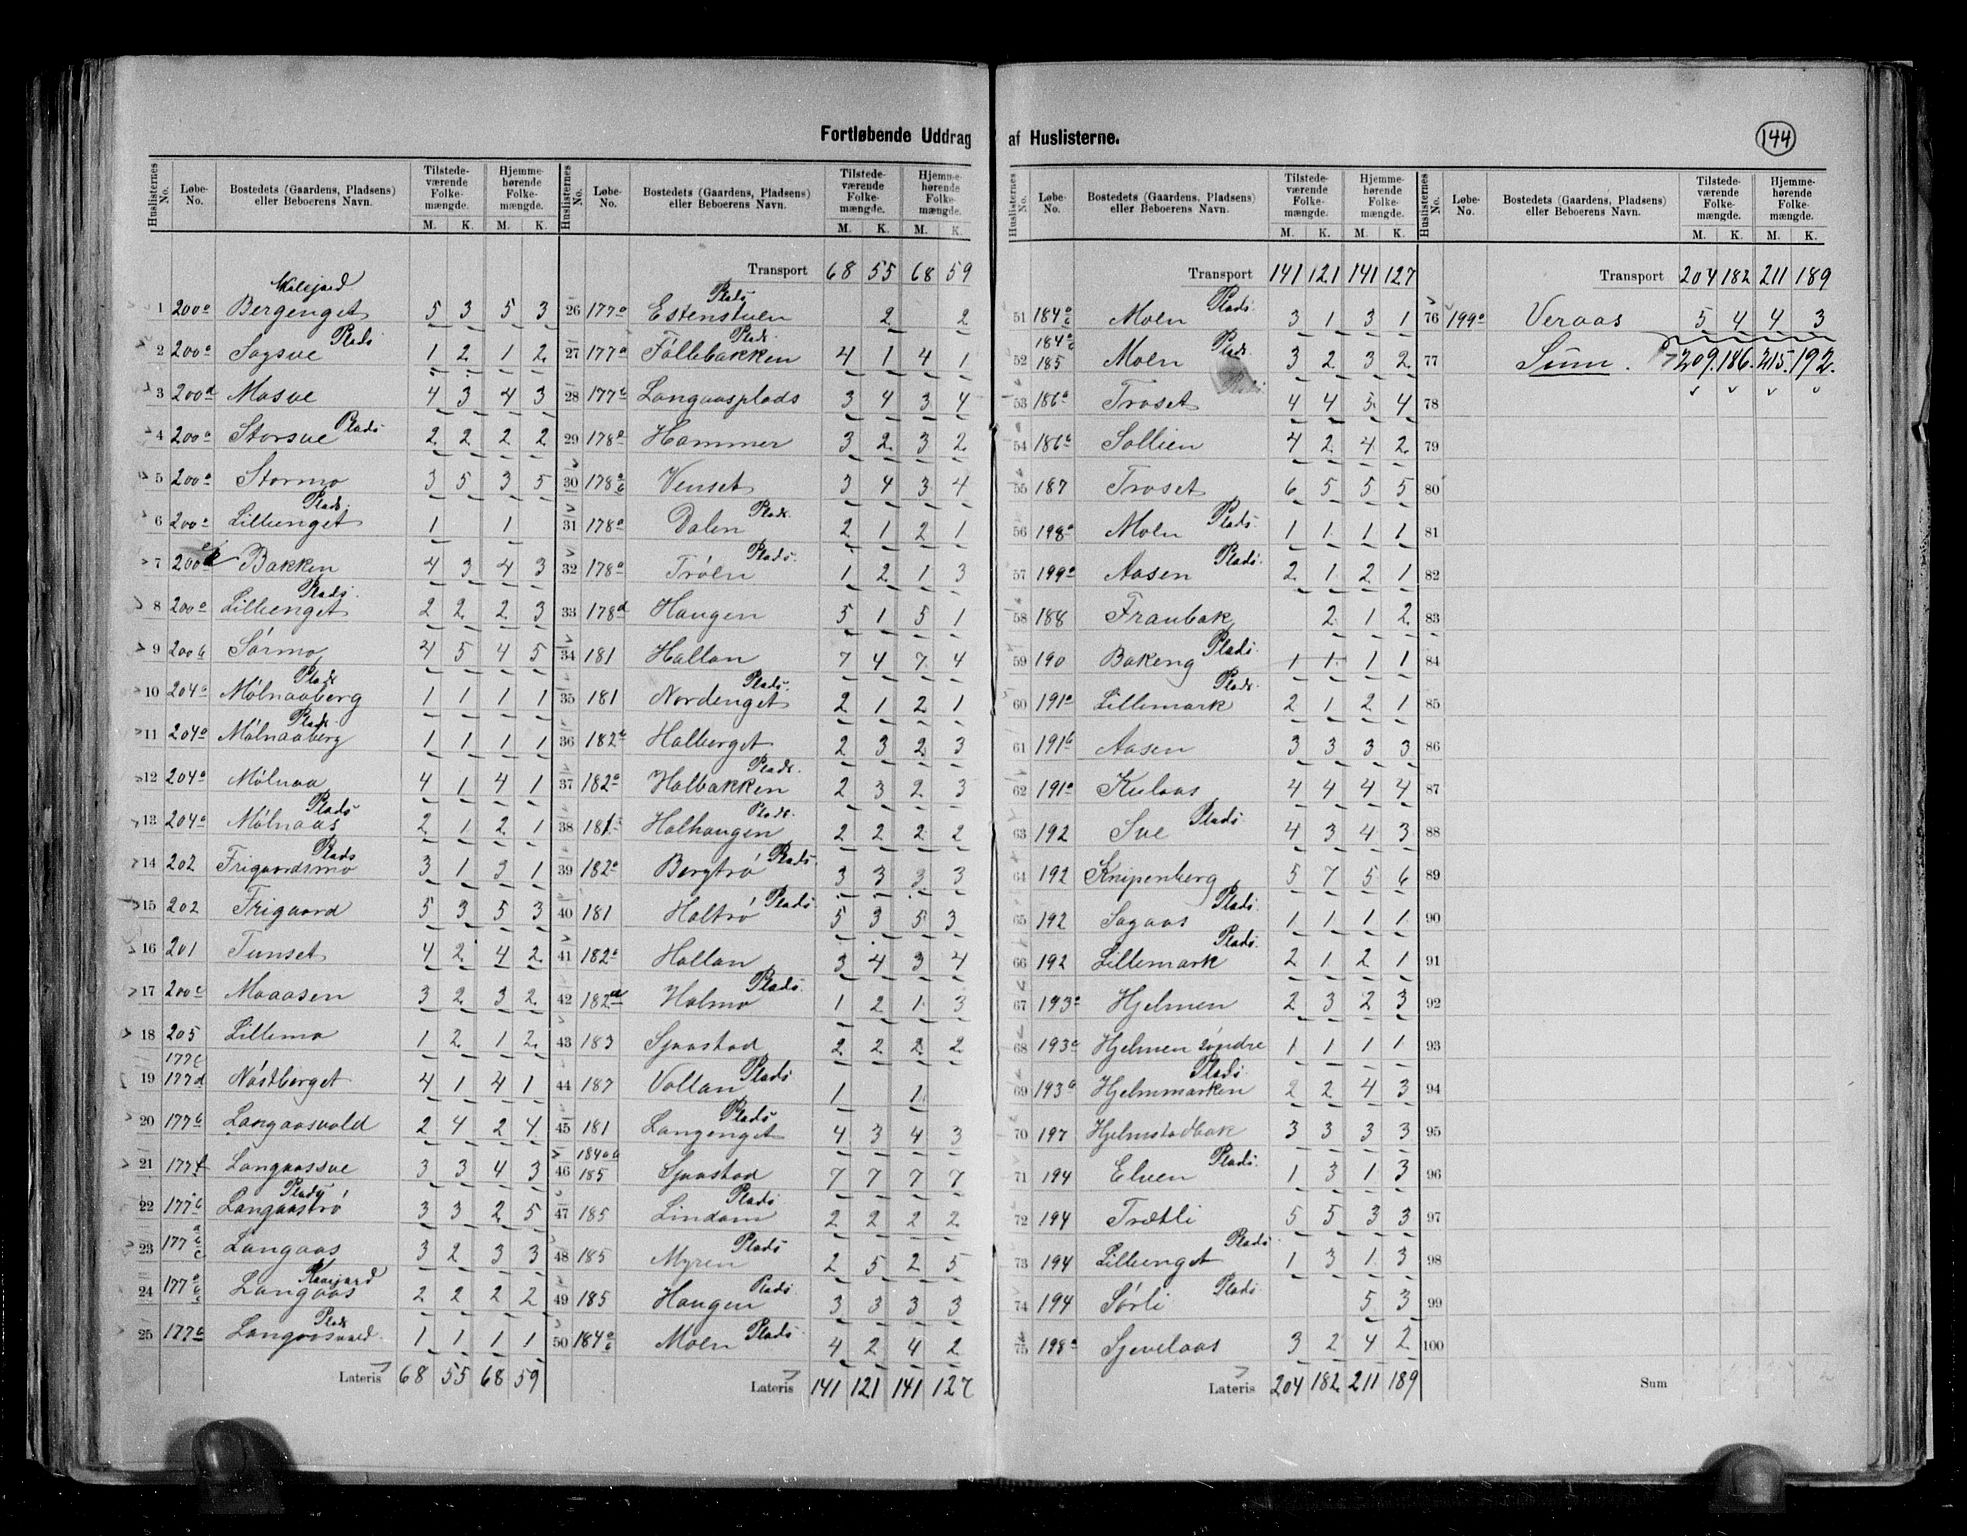 Fortløbende Uddrag af Huslisterne.
144
Huslisternes No. Løbe-No. Bostedets (Gaardens, Pladsens) eller Beboerens Navn. Tilstedeværende Folkemængde. M. K. Hjemmehørende Folkemængde. M. K.
1 200a Bergenget 5 3 5 3
2 200a Sagsve Plads 1 2 1 2
3 200d Mosve 4 3 4 3
4 200a Storsve Plads 2 2 2 2
5 200a Stormo 3 5 3 5
6 200a Lillenget Plads 1 1
7 200 Bakken 4 3 4 3
8 200a Lillenget Plads. 2 2 2 3
9 200b Sørmo 4 5 4 5
10 204a Mølnaaberg Plads 1 1 1 1
11 204a Mølnaaberg Plads 1 1 1 1
12 204a Mølnaa 4 1 4 1
13 204a Mølnaas Plads 2 1 2 1
14 202 Frigaardsmo Plads 3 1 3 1
15 202 Frigaard 5 3 5 3
16 201 Tunset 4 2 4 2
17 200c Moaasen 3 2 3 2
18 205 Lillemo 1 2 1 2
19 177c 177d Nøstberget 4 1 4 1
20 177b Langaasvold 2 4 2 4
21 177f Langaassve 3 3 4 3
22 177b Langaastrø Plads 3 3 2 5
23 177 a b c Langaas 3 2 3 3
24 177 a b c Langaas 2 2 2 2
25 177a Langaasvald Plads 1 1 1 1
Lateris 68 55 68 59
Huslisternes No. Løbe-No. Bostedets (Gaardens, Pladsens) eller Beboerens Navn. Tilstedeværende Folkemængde. M. K. Hjemmehørende Folkemængde. M. K.
Transport 68 55 68 59
26 177a Estenstuen Plads 2 2
27 177a Føllebakken Plads 4 1 4 1
28 177b Langaasplads 3 4 3 4
29 178a Hammer 3 2 3 2
30 178 a b Venset 3 4 3 4
31 178a Dalen Plads 2 1 2 1
32 178a Trøen Plads. 1 2 1 3
33 178d Haugen 5 1 5 1
34 181 Hallan 7 4 7 4
35 181 Nordenget Plads. 2 1 2 1
36 182b Halberget 2 3 2 3
37 182a Halbakken Plads. 2 3 2 3
38 181 Halhaugen Plads. 2 2 2 2
39 182a Bergtrø Plads. 3 3 3 3
40 181 Haltrø Plads. 5 3 5 3
41 182a Hallan 3 4 3 4
42 182d Halmo Plads. 1 2 1 3
43 183 Sjaastad 2 2 2 2
44 187 Vollan Plads 1 1
45 181 Langenget Plads 4 3 4 3
46 184ab 185 Sjaastad 7 7 7 7
47 185 Lindam Plads 2 2 2 2
48 185 Myren Plads 2 5 2 5
49 185 Haugen Plads 3 3 3 3
50 184 a b Moen Plads 4 2 4 2
Lateris 141 121 141 127
Huslisternes No. Løbe-No. Bostedets (Gaardens, Pladsens) eller Beboerens Navn. Tilstedeværende Folkemængde. M. K. Hjemmehørende Folkemængde. M. K.
Transport 141 121 141 127
51 184 a b Moen Plads 3 1 3 1
52 184 a b 185 Moen Plads 3 2 3 2
53 186a Troset 4 4 5 4
54 186a Sollien 4 2 4 2
55 187 Troset 6 5 5 5
56 198a Moen Plads. 1 1 1 1
57 199a Aasen Plads. 2 1 2 1
58 188 Fraubak 2 1 2
59 190 Bakeng Plads. 1 1 1 1
60 191a Lillemark Plads. 2 1 2 1
61 191b Aasen 3 3 3 3
62 191a Kulaas 4 4 4 4
63 192 Sve Plads. 4 3 4 3
64 192 Knipenberg 5 7 5 6
65 192 Sagaas Plads. 1 1 1 1
66 192 Lillemark Plads. 2 1 2 1
67 193a Hjelmen 2 3 2 3
68 193c Hjelmen søndre 1 1 1 1
69 193b Hjelmmarken Plads. 2 2 4 3
70 197 Hjelmstadbak 3 3 3 3
71 194 Elven Plads. 1 3 1 3
72 194 Trætli 5 5 3 3
73 194 Lillenget Plads. 1 3 1 3
74 194 Sørli Plads. 5 3
75 198a Sjevelaas 3 2 4 2
Lateris 204 182 211 189
Huslisternes No. Løbe-No. Bostedets (Gaardens, Pladsens) eller Beboerens Navn. Tilstedeværende Folkemængde. M. K. Hjemmehørende Folkemængde. M. K.
Transport 204 182 211 189
76 199a Veraas 5 4 4 3
77 Sum. 209. 186. 215. 192.
78
79
80
81
82
83
84
85
86
87
88
89
90
91
92
93
94
95
96
97
98
99
100
Sum